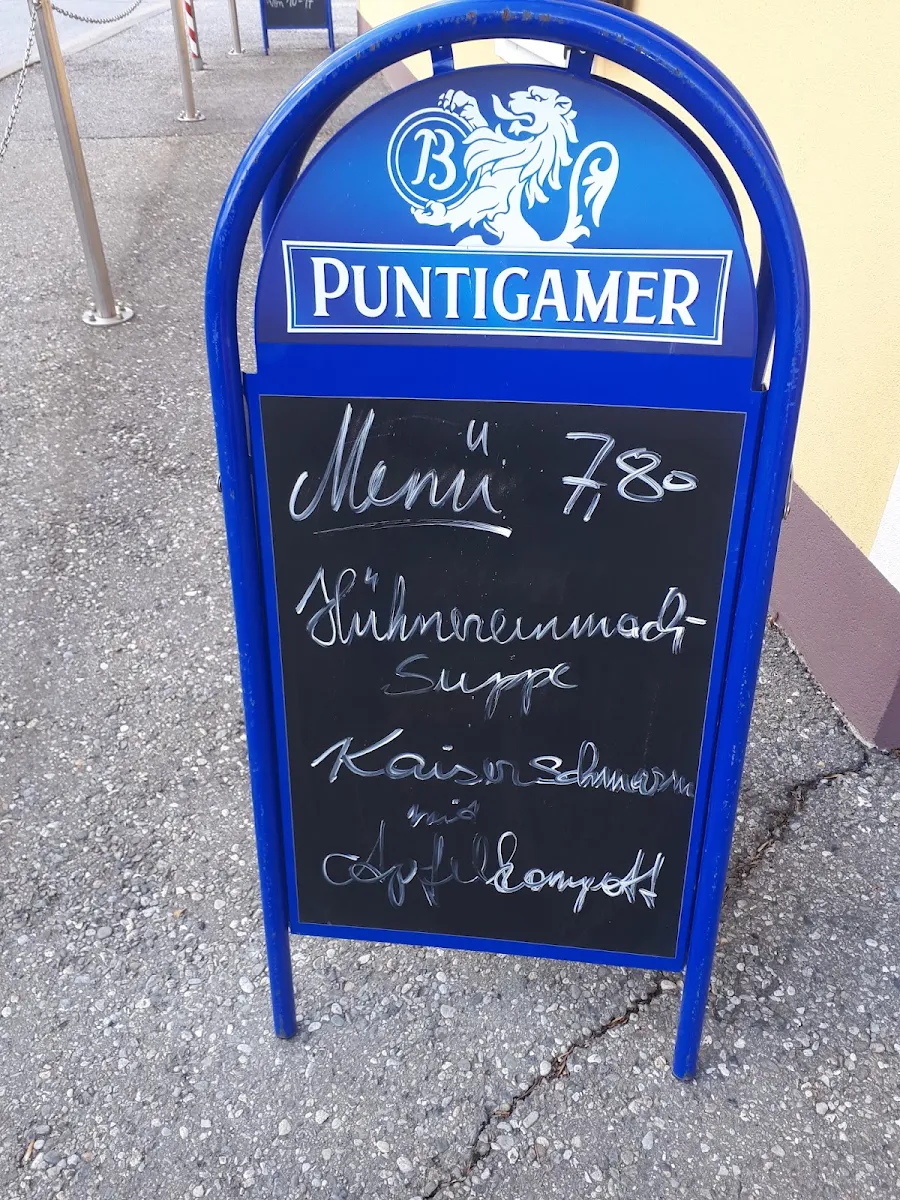 B
PUNTIGAMER
Menü 7,80
Hühnereinmach-
Suppe
Kaiserschmarrn
mit
Apfelkompott